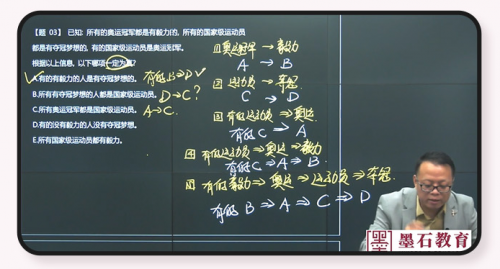 【题 03】 已知: 所有的奥运冠军都是有毅力的, 所有的国家级运动员
都是有夺冠梦想的, 有的国家级运动员是奥运冠军。
根据以上信息, 以下哪项一定为真?
A.有的有毅力的人是有夺冠梦想的。
B.所有有夺冠梦想的人都是国家级运动员。
C.所有奥运冠军都是国家级运动员。
D.有的没有毅力的人没有夺冠梦想。
E.所有国家级运动员都有毅力。
有的B→D √
D→C?
A→C
①奥运冠军→毅力
A → B
②运动员→夺冠
C → D
③有的运动员→奥运
有的C → A
④有的运动员→奥运→毅力
有的C→A→B
⑤有的毅力→奥运→运动员→夺冠
有的B→A→C→D
墨石
墨石教育